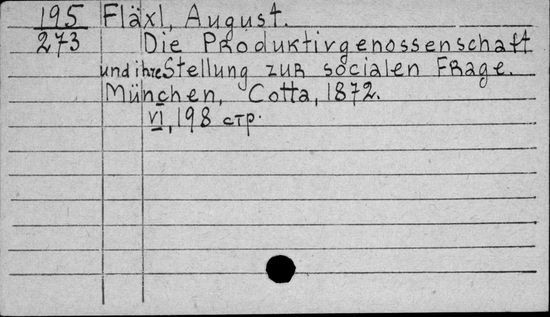 195 Fläxl, August.
273 Die Produktivgenossenschaft
und ihre Stellung zur socialen Frage.
München, Cotta, 1872.
VI, 198 стр.